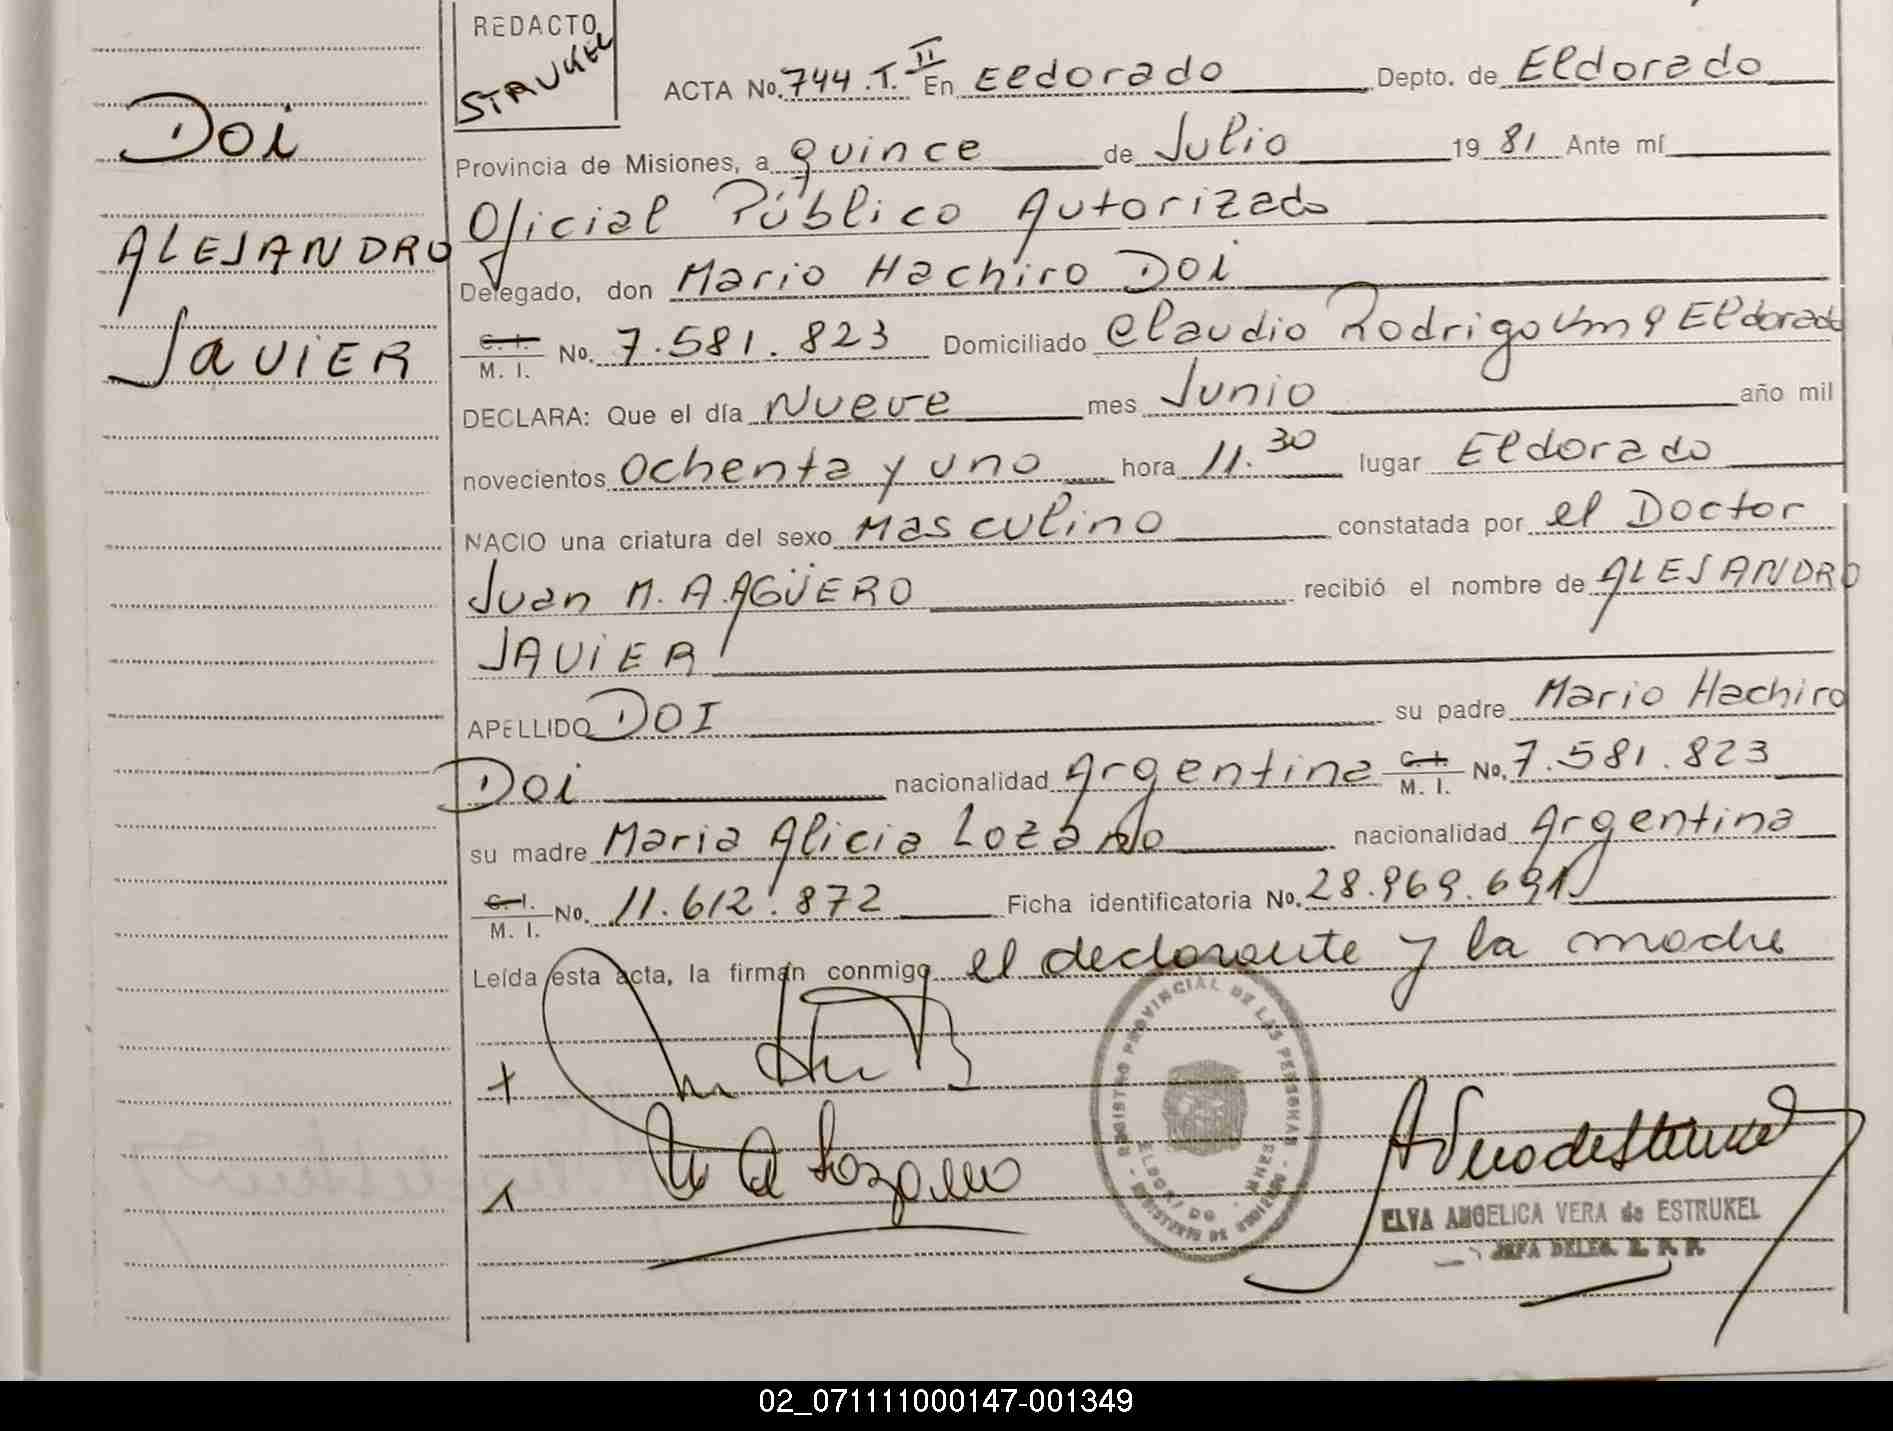 REDACTO
STRUKEL
ACTA No. 744.T. II En Eldorado Depto. de Eldorado
Doi
Provincia de Misiones, a quince de Julio 19 81 Ante mí
Oficial Público Autorizado
ALEJANDRO
Delegado, don Mario Hachiro Doi
JAVIER
C. I. M. I. No. 7.581.823 Domiciliado Claudio Rodrigo Km 9 Eldorado
DECLARA: Que el día Nueve mes Junio año mil
novecientos Ochenta y uno hora 11.30 lugar Eldorado
NACIO una criatura del sexo Masculino constatada por el Doctor
Juan M. A. AGÜERO recibió el nombre de ALEJANDRO
JAVIER
APELLIDO DOI su padre Mario Hachiro
Doi nacionalidad Argentina C. I. M. I. No. 7.581.823
su madre Maria Alicia Lozano nacionalidad Argentina
C. I. M. I. No. 11.612.872 Ficha identificatoria No. 28.969.691
Leída esta acta, la firman conmigo el declarante y la madre
REGISTRO PROVINCIAL DE LAS PERSONAS
ELDORADO - MNES
M A Lozano
ELVA ANGELICA VERA de ESTRUKEL
JEFA DELEG. R. P. P.
02_071111000147-001349